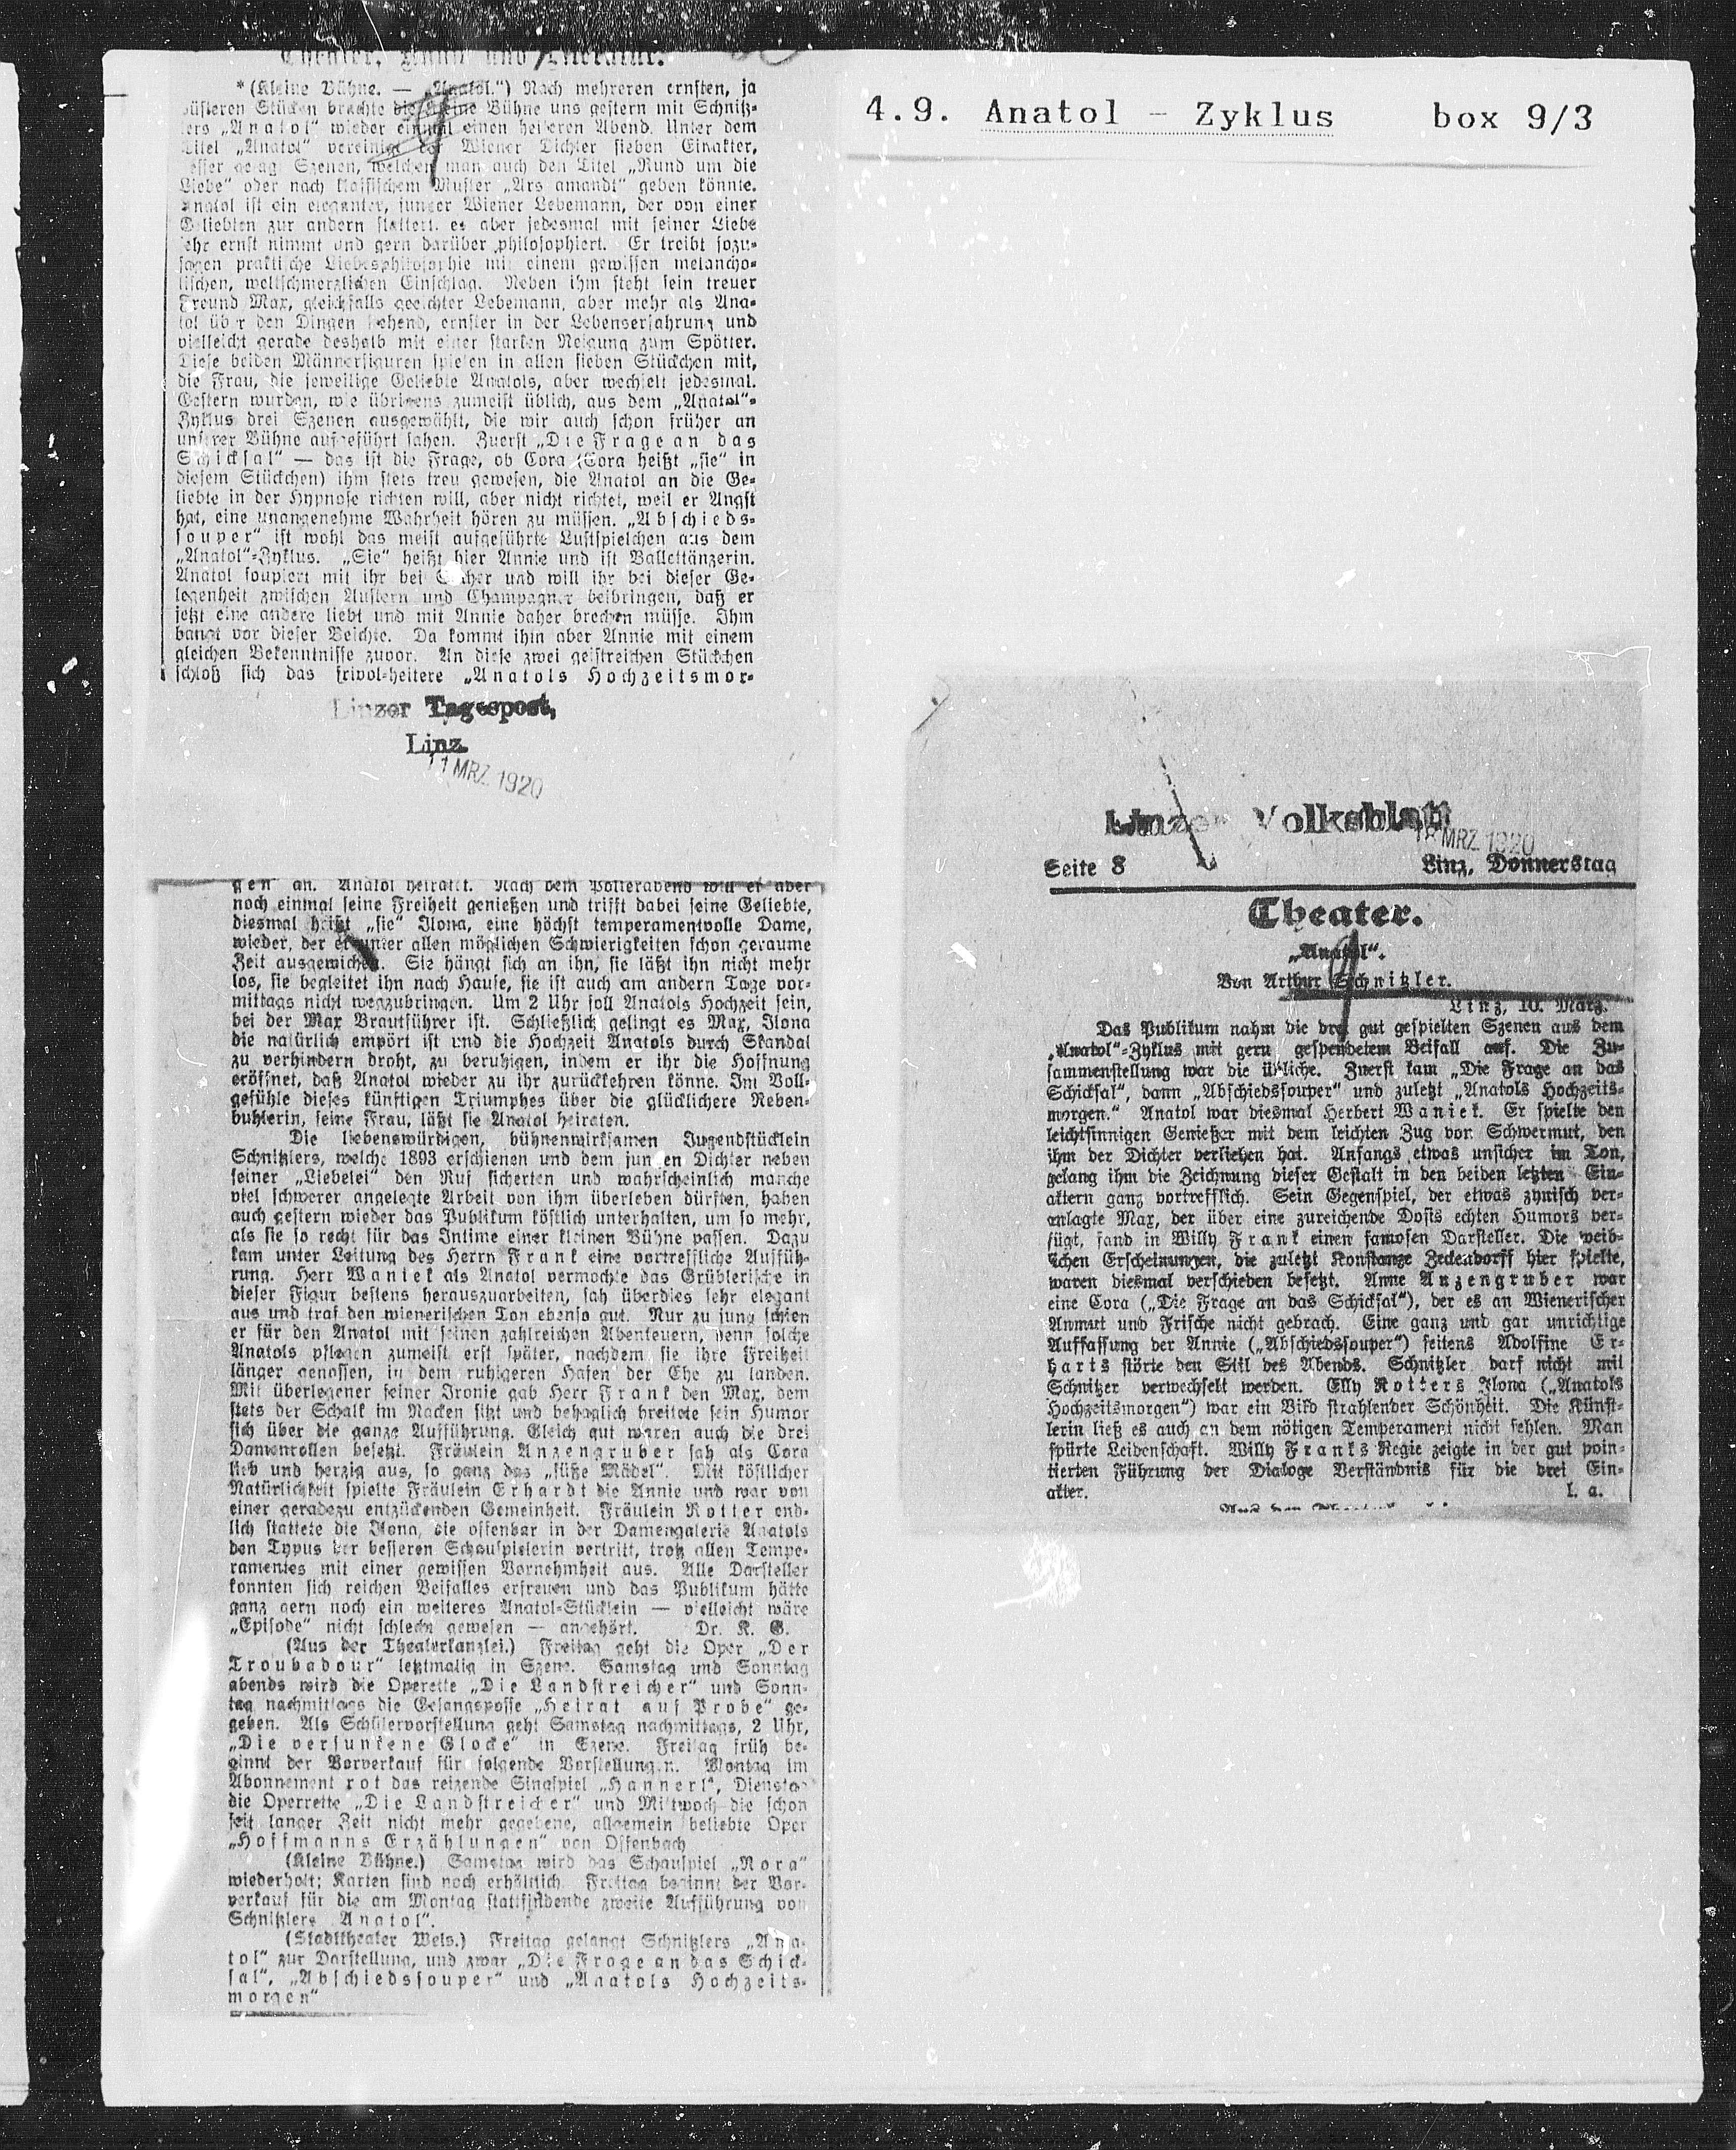 4.9. Anatol - Zyklus box 9/3
Theater, Kunst und Literatur.
* (Kleine Bühne. — „Anatol.") Nach mehreren ernsten, ja
düsteren Stücken brachte die Kleine Bühne uns gestern mit Schnitz-
lers „Anatol" wieder einmal einen heiteren Abend. Unter dem
Titel „Anatol" vereinigt der Wiener Dichter sieben Einakter,
besser gesagt Szenen, welchen man auch den Titel „Rund um die
Liebe" oder nach klassischem Muster „Ars amandi" geben könnte.
Anatol ist ein eleganter, junger Wiener Lebemann, der von einer
Geliebten zur andern flattert, es aber jedesmal mit seiner Liebe
sehr ernst nimmt und gern darüber philosophiert. Er treibt sozu-
sagen praktische Liebesphilosophie mit einem gewissen melancho-
lischen, weltschmerzlichen Einschlag. Neben ihm steht sein treuer
Freund Max, gleichfalls geeichter Lebemann, aber mehr als Ana-
tol über den Dingen stehend, ernster in der Lebenserfahrung und
vielleicht gerade deshalb mit einer starken Neigung zum Spötter.
Diese beiden Männerfiguren spielen in allen sieben Stückchen mit,
die Frau, die jeweilige Geliebte Anatols, aber wechselt jedesmal.
Gestern wurden, wie übrigens zumeist üblich, aus dem „Anatol"-
Zyklus drei Szenen ausgewählt, die wir auch schon früher an
unserer Bühne aufgeführt sahen. Zuerst „Die Frage an das
Schicksal" — das ist die Frage, ob Cora (Cora heißt „sie" in
diesem Stückchen) ihm stets treu gewesen, die Anatol an die Ge-
liebte in der Hypnose richten will, aber nicht richtet, weil er Angst
hat, eine unangenehme Wahrheit hören zu müssen. „Abschieds-
souper" ist wohl das meist aufgeführte Lustspielchen aus dem
„Anatol"-Zyklus. „Sie" heißt hier Annie und ist Ballettänzerin.
Anatol soupiert mit ihr bei Sacher und will ihr bei dieser Ge-
legenheit zwischen Austern und Champagner beibringen, daß er
jetzt eine andere liebt und mit Annie daher brechen müsse. Ihm
bangt vor dieser Beichte. Da kommt ihm aber Annie mit einem
gleichen Bekenntnisse zuvor. An diese zwei geistreichen Stückchen
schloß sich das frivol-heitere „Anatols Hochzeitsmor-
Linzer Tagespost,
Linz.
11 MRZ. 1920
gen" an. Anatol heiratet. Nach dem Polterabend will er aber
noch einmal seine Freiheit genießen und trifft dabei seine Geliebte,
diesmal heißt „sie" Ilona, eine höchst temperamentvolle Dame,
wieder, der er unter allen möglichen Schwierigkeiten schon geraume
Zeit ausgewichen. Sie hängt sich an ihn, sie läßt ihn nicht mehr
los, sie begleitet ihn nach Hause, sie ist auch am andern Tage vor-
mittags nicht wegzubringen. Um 2 Uhr soll Anatols Hochzeit sein,
bei der Max Brautführer ist. Schließlich gelingt es Max, Ilona
die natürlich empört ist und die Hochzeit Anatols durch Skandal
zu verhindern droht, zu beruhigen, indem er ihr die Hoffnung
eröffnet, daß Anatol wieder zu ihr zurückkehren könne. Im Voll-
gefühle dieses künftigen Triumphes über die glücklichere Neben-
buhlerin, seine Frau, läßt sie Anatol heiraten.
Die liebenswürdigen, bühnenwirksamen Jugendstücklein
Schnitzlers, welche 1893 erschienen und dem jungen Dichter neben
seiner „Liebelei" den Ruf sicherten und wahrscheinlich manche
viel schwerer angelegte Arbeit von ihm überleben dürften, haben
auch gestern wieder das Publikum köstlich unterhalten, um so mehr,
als sie so recht für das Intime einer kleinen Bühne passen. Dazu
kam unter Leitung des Herrn Frank eine vortreffliche Auffüh-
rung. Herr Waniek als Anatol vermochte das Grüblerische in
dieser Figur bestens herauszuarbeiten, sah überdies sehr elegant
aus und traf den wienerischen Ton ebenso gut. Nur zu jung schien
er für den Anatol mit seinen zahlreichen Abenteuern, denn solche
Anatols pflegen zumeist erst später, nachdem sie ihre Freiheit
länger genossen, in dem ruhigeren Hafen der Ehe zu landen.
Mit überlegener feiner Ironie gab Herr Frank den Max, dem
stets der Schalk im Nacken sitzt und behaglich breitete sein Humor
sich über die ganze Aufführung. Gleich gut waren auch die drei
Damenrollen besetzt. Fräulein Anzengruber sah als Cora
lieb und herzig aus, so ganz das „süße Mädel". Mit köstlicher
Natürlichkeit spielte Fräulein Erhardt die Annie und war von
einer geradezu entzückenden Gemeinheit. Fräulein Rotter end-
lich stattete die Ilona, die offenbar in der Damengalerie Anatols
den Typus der besseren Schauspielerin vertritt, trotz allen Tempe-
ramentes mit einer gewissen Vornehmheit aus. Alle Darsteller
konnten sich reichen Beifalles erfreuen und das Publikum hätte
ganz gern noch ein weiteres Anatol-Stücklein — vielleicht wäre
„Episode" nicht schlecht gewesen — angehört. Dr. K. G.
(Aus der Theaterkanzlei.) Freitag geht die Oper „Der
Troubadour" letztmalig in Szene. Samstag und Sonntag
abends wird die Operette „Die Landstreicher" und Sonn-
tag nachmittags die Gesangsposse „Heirat auf Probe" ge-
geben. Als Schülervorstellung geht Samstag nachmittags, 2 Uhr,
„Die versunkene Glocke" in Szene. Freitag früh be-
ginnt der Vorverkauf für folgende Vorstellungen. Montag im
Abonnement rot das reizende Singspiel „Hannerl", Dienstag
die Operrette „Die Landstreicher" und Mittwoch die schon
seit langer Zeit nicht mehr gegebene, allgemein beliebte Oper
„Hoffmanns Erzählungen" von Offenbach
(Kleine Bühne.) Samstag wird das Schauspiel „Nora"
wiederholt; Karten sind noch erhältlich. Freitag beginnt der Vor-
verkauf für die am Montag stattfindende zweite Aufführung von
Schnitzlers „Anatol".
(Stadttheater Wels.) Freitag gelangt Schnitzlers „Ana-
tol" zur Darstellung, und zwar „Die Frage an das Schick-
sal", „Abschiedssouper" und „Anatols Hochzeits-
morgen"
Linzer Volksblatt
18 MRZ. 1920
Seite 8 Linz, Donnerstag
Theater.
„Anatol".
Von Arthur Schnitzler.
Linz, 10. März.
Das Publikum nahm die drei gut gespielten Szenen aus dem
„Anatol"-Zyklus mit gern gespendetem Beifall auf. Die Zu-
sammenstellung war die übliche. Zuerst kam „Die Frage an das
Schicksal", dann „Abschiedssouper" und zuletzt „Anatols Hochzeits-
morgen." Anatol war diesmal Herbert Waniek. Er spielte den
leichtsinnigen Genießer mit dem leichten Zug von Schwermut, den
ihm der Dichter verliehen hat. Anfangs etwas unsicher im Ton,
gelang ihm die Zeichnung dieser Gestalt in den beiden letzten Ein-
aktern ganz vortrefflich. Sein Gegenspiel, der etwas zynisch ver-
anlagte Max, der über eine zureichende Dosis echten Humors ver-
fügt, fand in Willy Frank einen famosen Darsteller. Die weib-
lichen Erscheinungen, die zuletzt Konstanze Zeckendorff hier spielte,
waren diesmal verschieden besetzt. Anne Anzengruber war
eine Cora („Die Frage an das Schicksal"), der es an Wienerischer
Anmut und Frische nicht gebrach. Eine ganz und gar unrichtige
Auffassung der Annie („Abschiedssouper") seitens Adolfine Er-
harts störte den Stil des Abends. Schnitzler darf nicht mit
Schnitzer verwechselt werden. Elly Rotters Ilona („Anatols
Hochzeitsmorgen") war ein Bild strahlender Schönheit. Die Künst-
lerin ließ es auch an dem nötigen Temperament nicht fehlen. Man
spürte Leidenschaft. Willy Franks Regie zeigte in der gut poin-
tierten Führung der Dialoge Verständnis für die drei Ein-
akter. l. a.